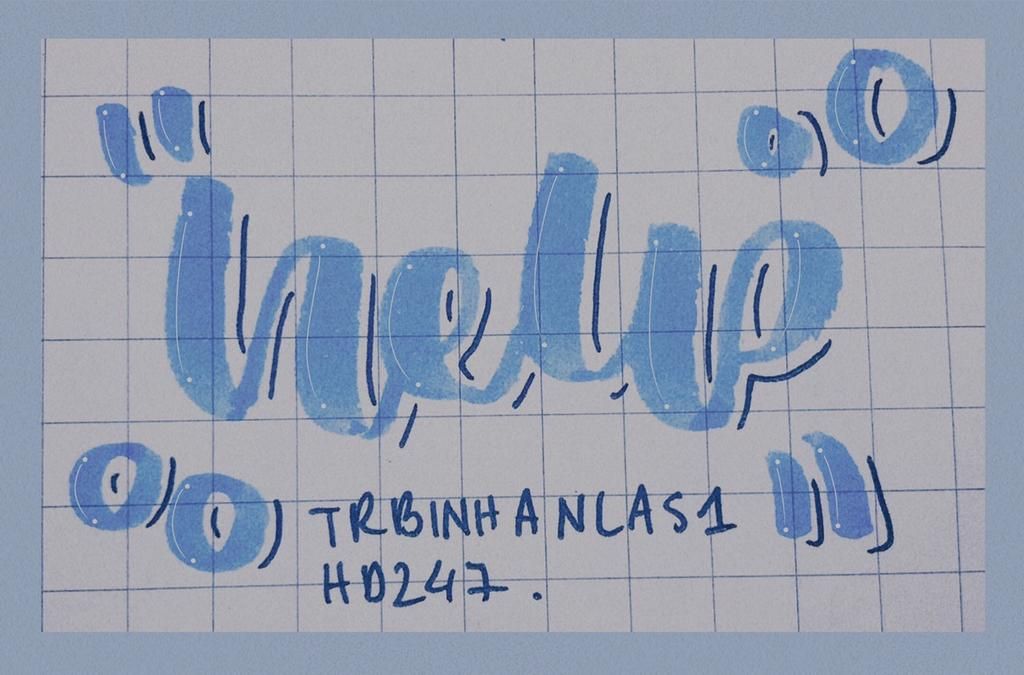 "help"
TRBINHANLAS1
HD247.